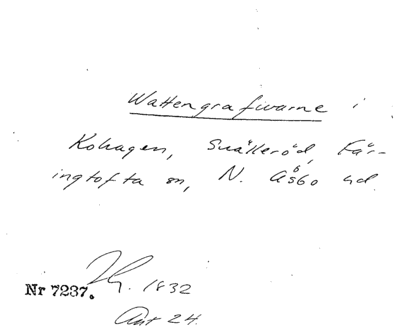 Wattengrafwarne i
Kohagen, Snälleröd, Fär-
ingtofta sn, N. Åsbo hd.
Nr 7237. 1832
Ant 24.